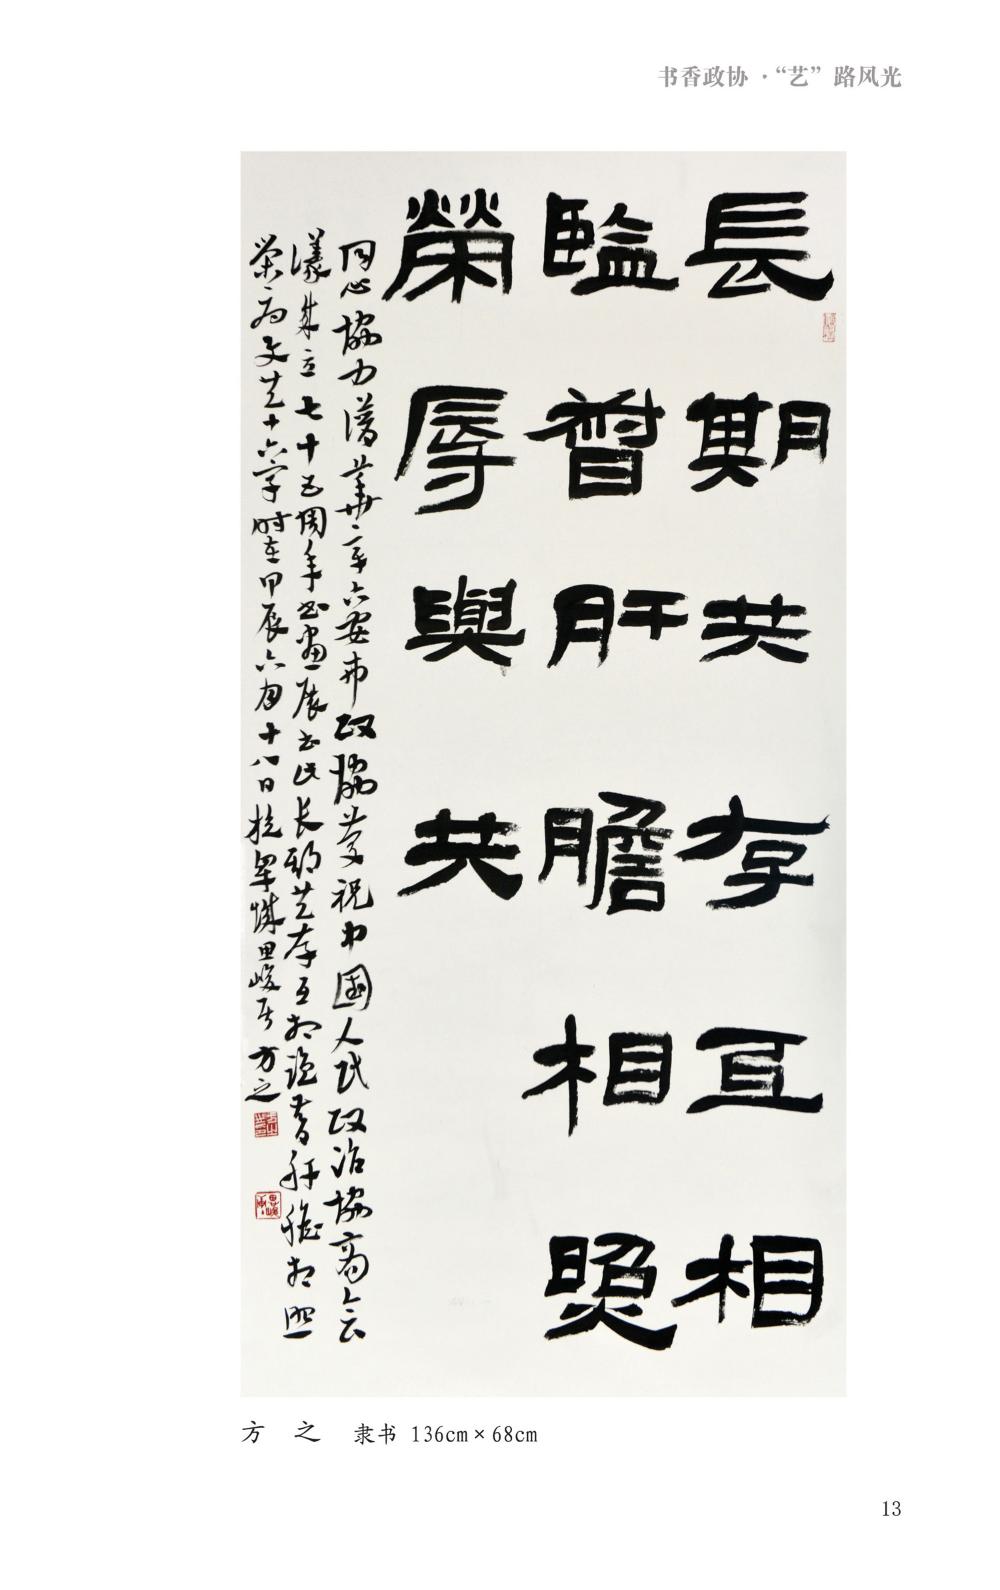 书香政协·“艺”路风光
長期共存互相
監督肝膽相照
榮辱與共
同心協力譜華章六安市政協慶祝中國人民政治協商會
議成立七十五周年書畫展书此长期共存互相監督肝膽相照
榮辱與共十六字时在甲辰六月十八日於皋城田峻居方之
方之 隶书 136cm×68cm
13